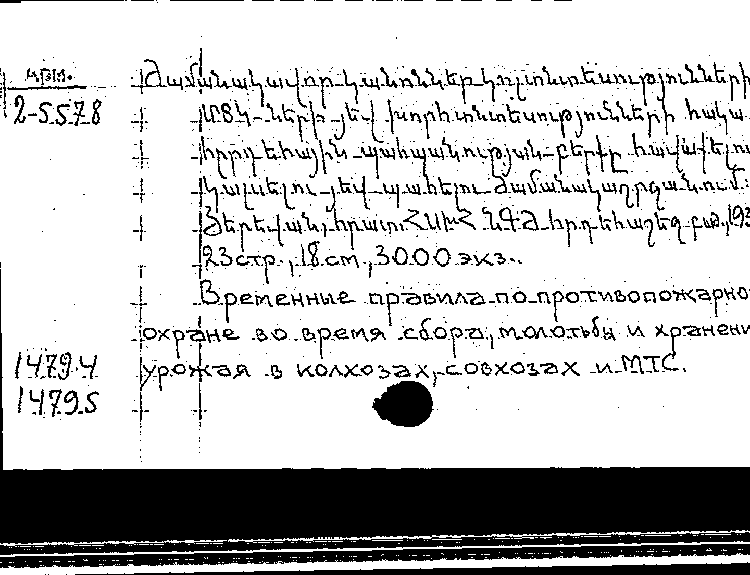 արտ.
2-5578
Ժամանակավոր կանոններ կոլտնտեսությունների
ՄՏԿ-ների յեվ խորհտնտեսությունների հակա
հրդեհային պահպանության բերքը հավաքելու
կալսելու յեվ պահելու ժամանակաշրջանում:
Յերեվան, հրատ. ՀՍԽՀ ՆԳԺ հրդեհաշեջ բաժ., 193
23 стр., 18 см., 3000 экз..
Временные правила по противопожарно
охране во время сбора, молотьбы и хранени
1479.4
урожая в колхозах, совхозах и МТС.
1479.5